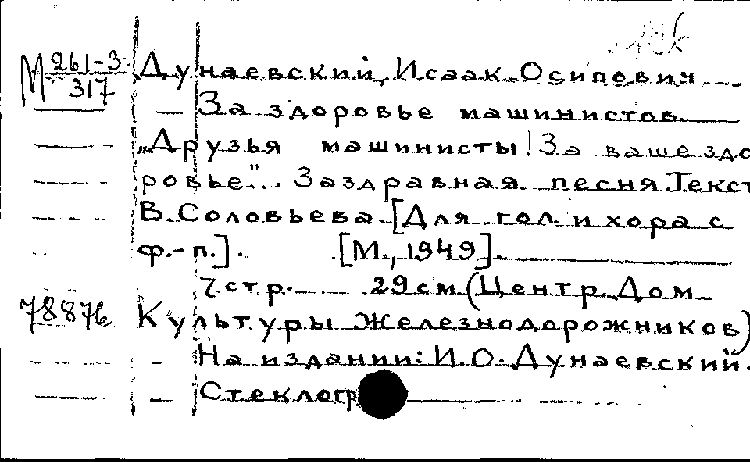 М 261-3
317
Дунаевский, Исаак Осипович
— За здоровье машинистов.
„Друзья машинисты! За ваше здо
ровье". Заздравная песня. Текст
В. Соловьева. [Для гол. и хора с
ф.-п.]. [М., 1949].
7 стр. 29 см (Центр. Дом
78876
Культуры Железнодорожников)
— На издании: И.О. Дунаевский.
— Стеклогр